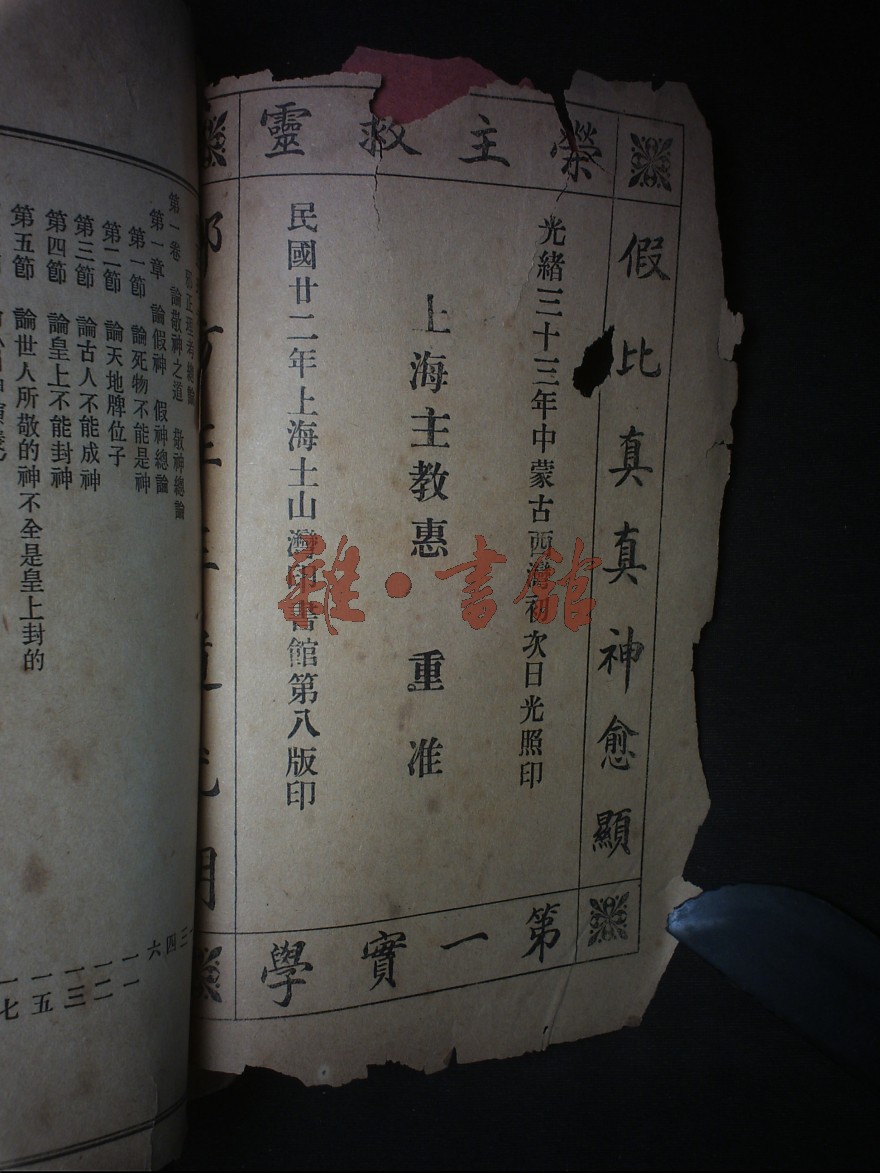 榮主救靈
假比真真神愈顯
光緒三十三年中蒙古西灣初次日光照印
上海主教惠 重准
民國廿二年上海土山灣印書館第八版印
第一實學
雜·書館
邪正理考總論
第一卷 論敬神之道 敬神總論 三
第一章 論假神 假神總論 四
第一節 論死物不能是神 六
第二節 論天地牌位子 一一
第三節 論古人不能成神 一二
第四節 論皇上不能封神 一三
第五節 論世人所敬的神不全是皇上封的 一五
一七